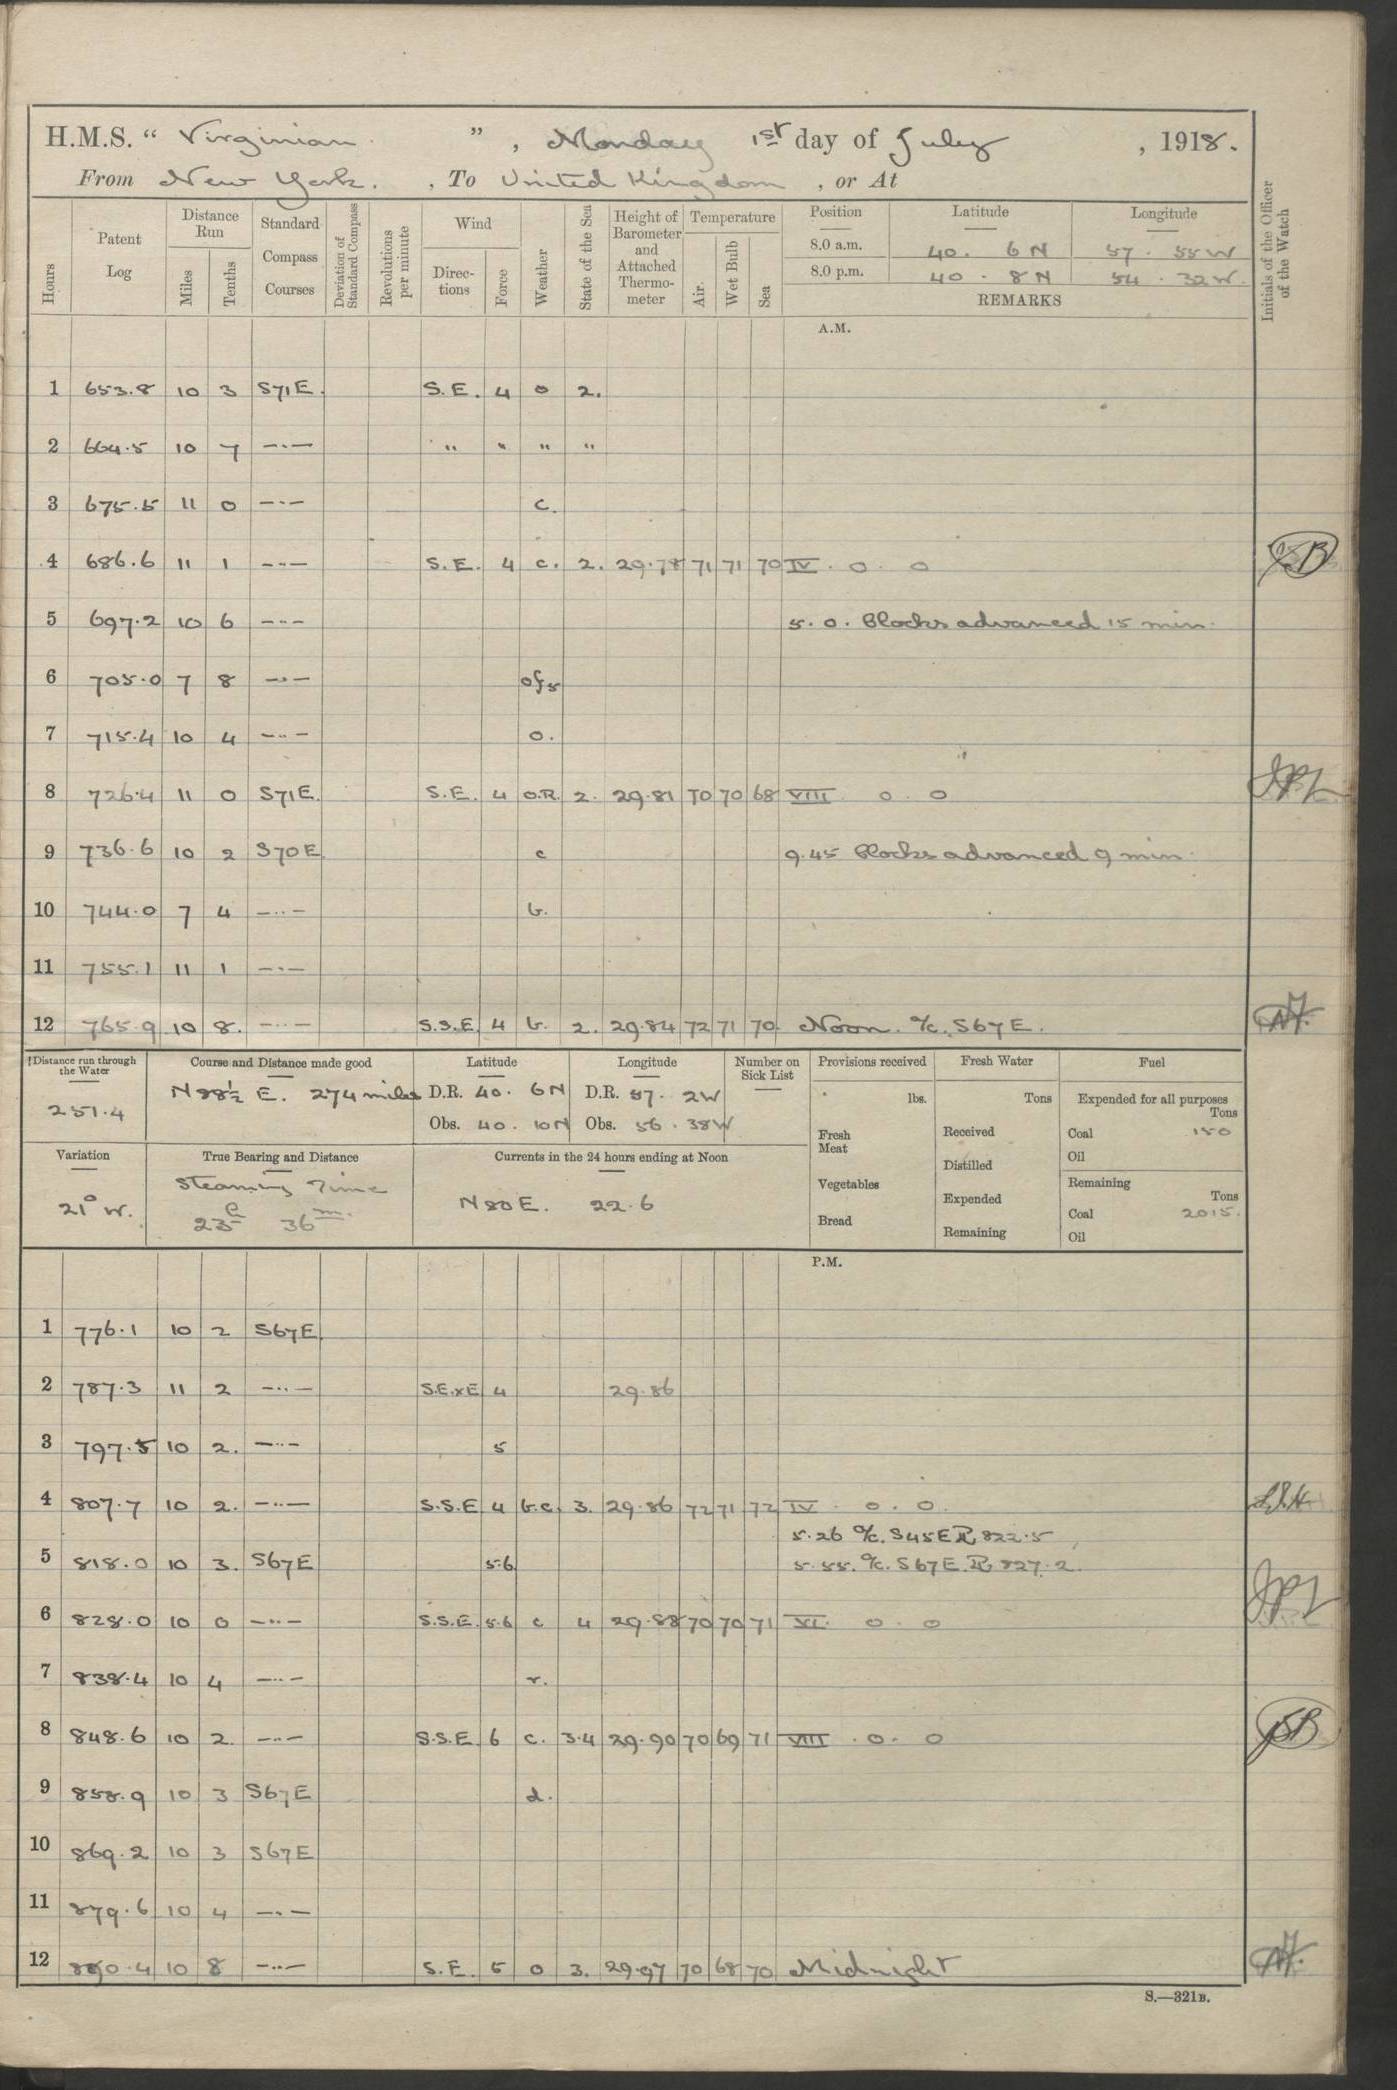 H.M.S. “ Virginian ” , Monday 1st day of July , 1918.
From New York. , To United Kingdom , or At
Hours
Patent Log
Distance Run
Miles
Tenths
Standard Compass Courses
Deviation of Standard Compass
Revolutions per minute
Wind
Directions
Force
Weather
State of the Sea
Height of Barometer and Attached Thermometer
Temperature
Air.
Wet Bulb
Sea
Position Latitude Longitude
8.0 a.m. 40. 6 N 57. 55 W
8.0 p.m. 40. 8 N 54. 32 W.
REMARKS
Initials of the Officer of the Watch
A.M.
1 653.8 10 3 S71E. S.E. 4 o 2.
2 664.5 10 7 —··— " " " "
3 675.5 11 0 —··— c.
4 686.6 11 1 —··— S.E. 4 c. 2. 29.78 71 71 70 IV. 0. 0
5 697.2 10 6 —··— 5. 0. Clocks advanced 15 min.
6 705.0 7 8 —··—
7 715.4 10 4 —··— o.
8 726.4 11 0 S71E. S.E. 4 O.R. 2. 29.81 70 70 68 VIII 0. 0
9 736.6 10 2 S70E. c 9.45 Clocks advanced 9 min.
10 744.0 7 4 —··— b.
11 755.1 11 1 —··—
12 765.9 10 8. —··— S.S.E. 4 b. 2. 29.84 72 71 70. Noon. %c. S67E.
Distance run through the Water
251.4
Course and Distance made good
N88½ E. 274 miles
Latitude
D.R. 40. 6N
Obs. 40. 10N
Longitude
D.R. 57. 2W
Obs. 56. 38W
Number on Sick List
Provisions received
lbs.
Fresh Meat
Vegetables
Bread
Fresh Water
Tons
Received
Distilled
Expended
Remaining
Fuel
Expended for all purposes
Tons
Coal 150
Oil
Remaining
Tons
Coal 2015.
Oil
Variation
21° W.
True Bearing and Distance
Steaming Time
23h 36m.
Currents in the 24 hours ending at Noon
N80E. 22.6
P.M.
1 776.1 10 2 S67E.
2 787.3 11 2 —··— S.E.xE 4 29.86
3 797.5 10 2. —··— 5
4 807.7 10 2. —··— S.S.E 4 b.c. 3. 29.86 72 71 72 IV 0. 0.
5.26 %c. S45E. 822.5
5 818.0 10 3. S67E 5.6 5.55. %c. S67E. 827.2.
6 828.0 10 0 —··— S.S.E. 5.6 c 4 29.88 70 70 71 VI. 0. 0
7 838.4 10 4 —··— r.
8 848.6 10 2. —··— S.S.E. 6 c. 3.4 29.90 70 69 71 VIII. 0. 0
9 858.9 10 3 S67E d.
10 869.2 10 3 S67E
11 879.6 10 4 —··—
12 890.4 10 8 —··— S.E. 5 o 3. 29.97 70 68 70 Midnight
S.—321B.